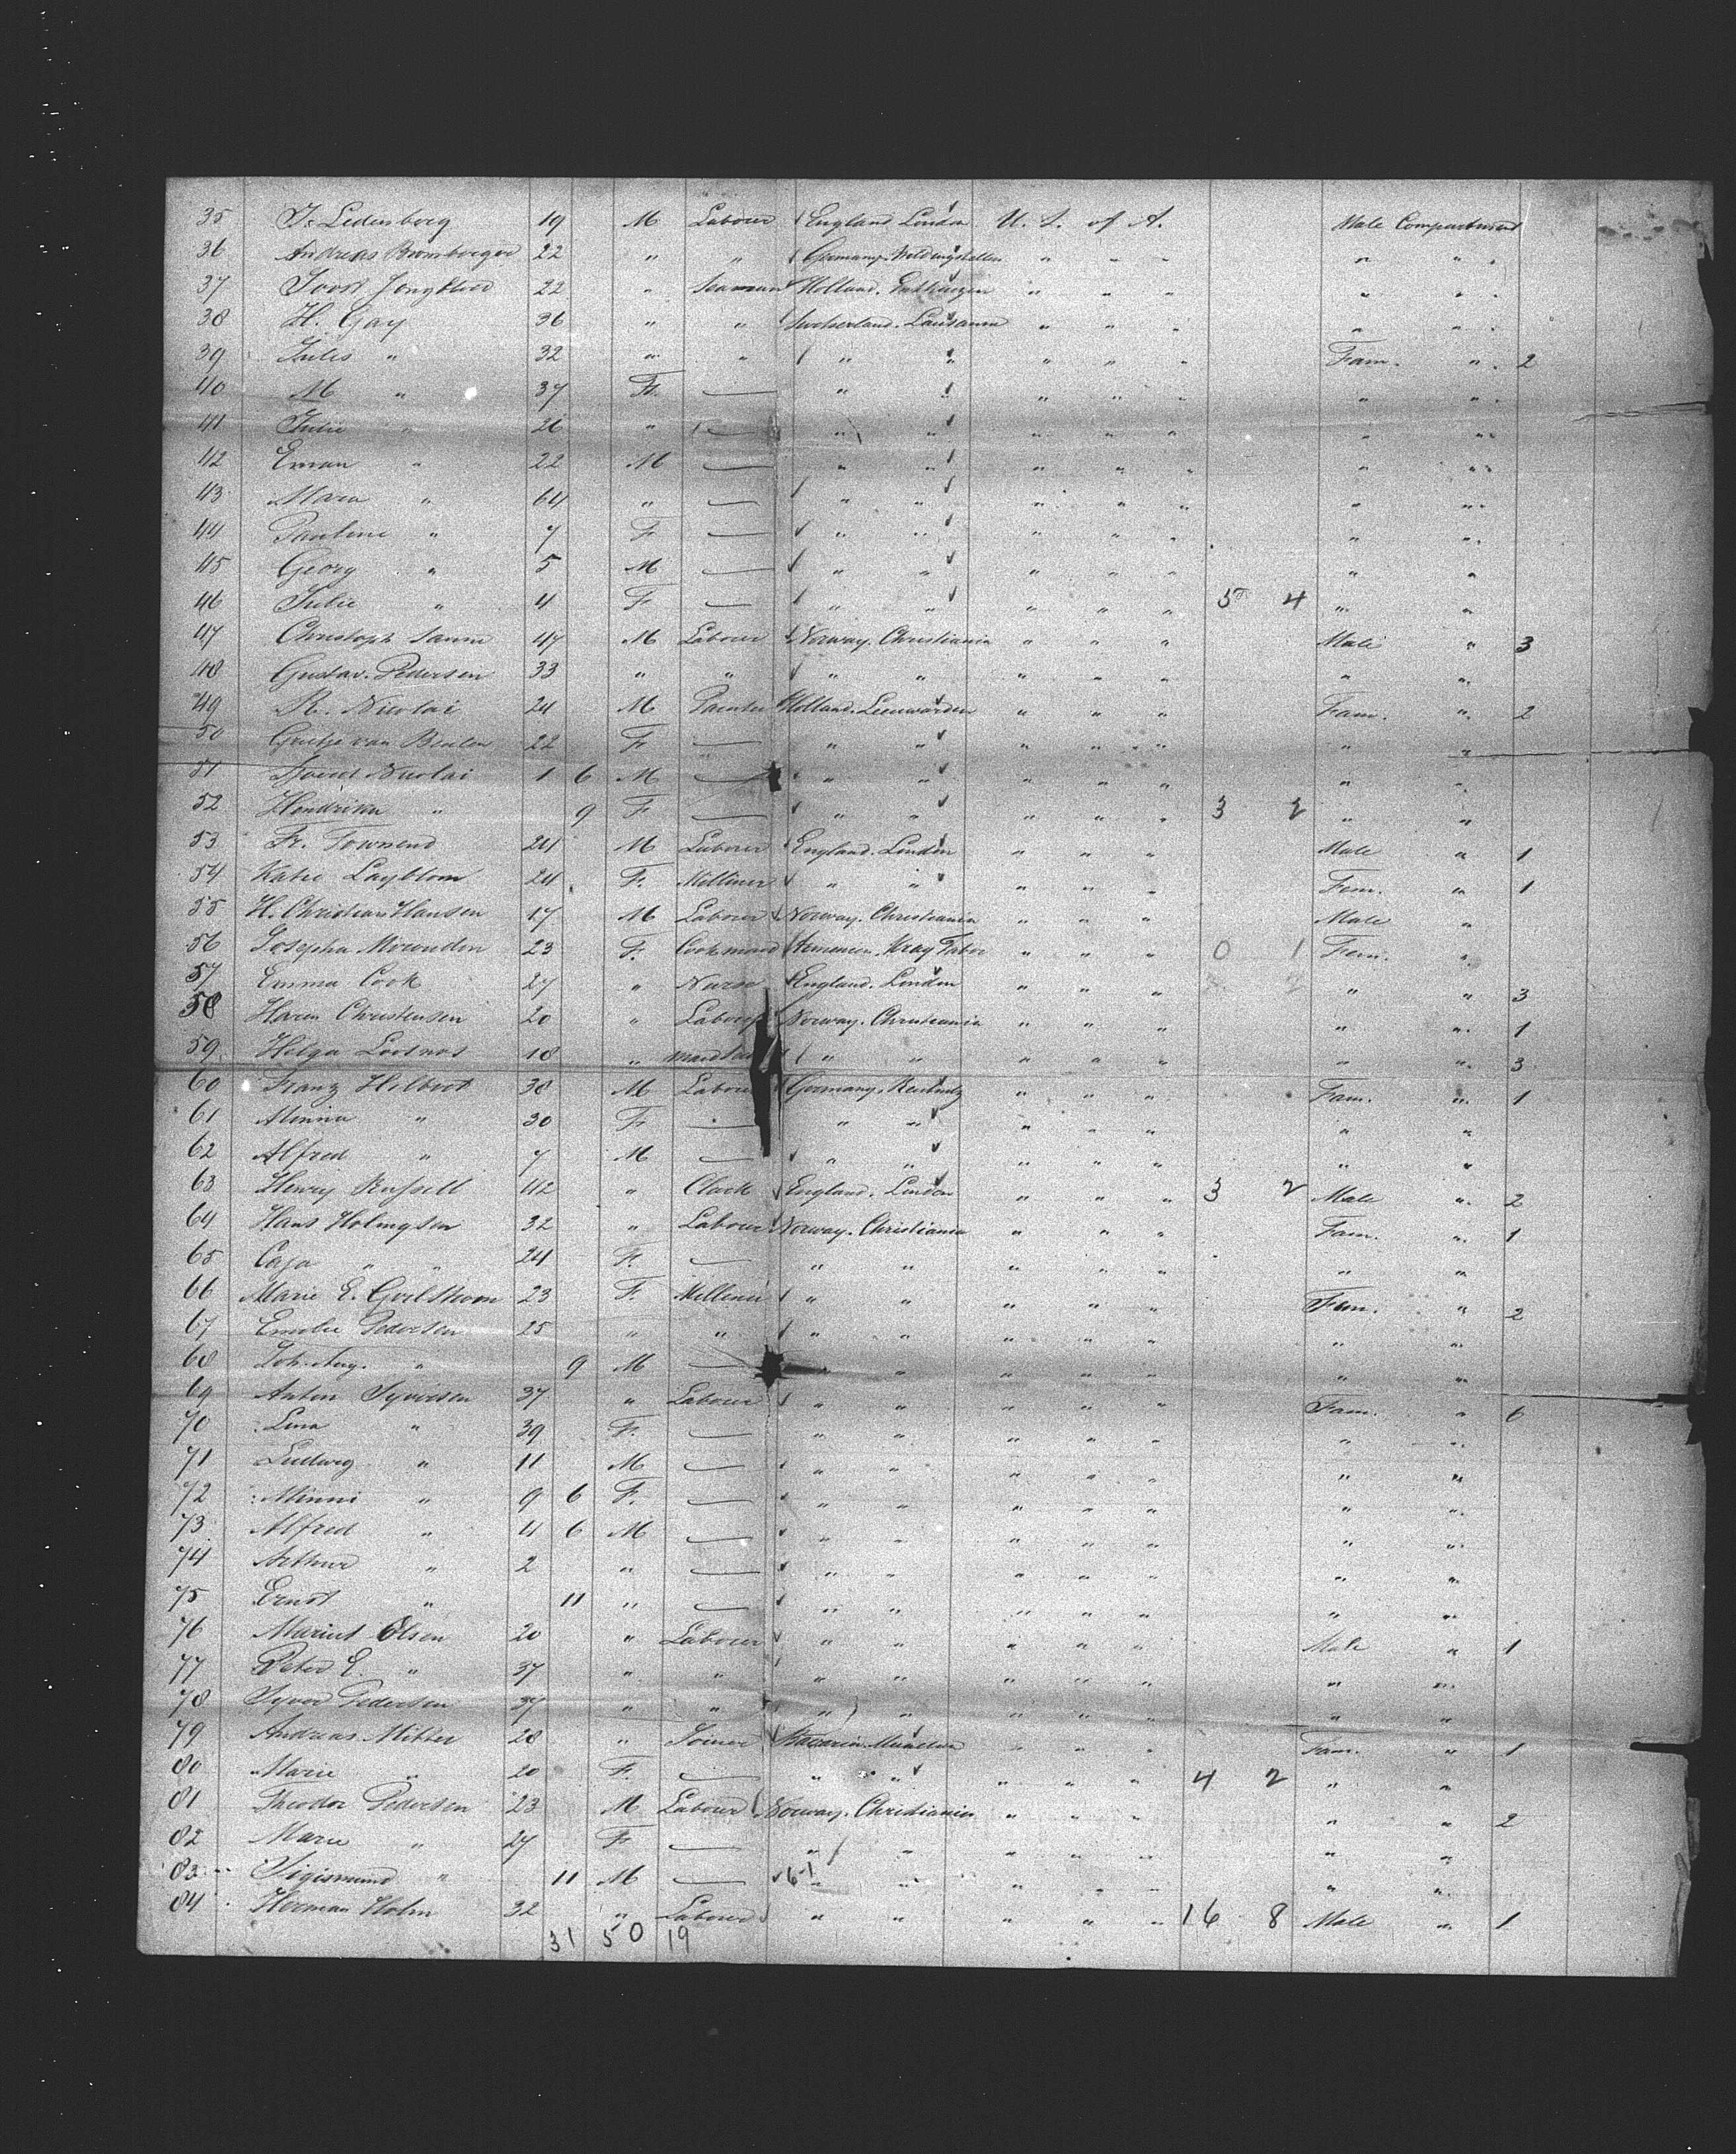 35 Fr. Ledensborg 19 M Labourer England London U. S. of A. Male Compartment
36 Andreas 22 " " Germany " " " " "
37 Joost Jongkloed 22 " Seaman Holland. " " " " "
38 H. Gay 36 " " Switserland. Lausanne " " " " "
39 Jules " 32 " " " " " " " Fam. " 2
40 M " 37 F. — " " " " " "
41 Julie " 26 " — " " " " " " "
42 Eman " 22 M — " " " " " " "
43 Mara " 64 " — " " " " " " "
44 Pauline " 7 F — " " " " " " "
45 Georg " 5 M — " " " " " " "
46 Julie " 4 F — " " " " " 5 4 " "
47 Christoph 47 M Labourer Norway. Christiania " " " Male " 3
48 Gustav. Pedersen 33 " " " " " " " " "
49 R. Nicolai 24 M Painter Holland. Leeuwarden " " " Fam. " 2
50 Grietje van 22 F — " " " " " " "
51 Sjoerd Nicolai 1 6 M — " " " " " " "
52 Hendrika " 9 F — " " " " " 3 2 " "
53 Fr. Townend 24 M Labourer England. London " " " Male " 1
54 Katie Layblom 24 F. Milliner " " " " " Fem. " 1
55 H. Christian Hansen 17 M Labourer Norway. Christiania " " " Male "
56 Josepha 23 F. Cookmaid " " " 0 1 Fem. "
57 Emma Cook 27 " Nurse England. London " " " 2 " " 3
58 Haren Christensen 20 " Labour Norway. Christiania " " " " " 1
59 Helga 18 " " " " " " " " 3
60 Franz Hilbert 38 M Labourer Germany. " " " Fam. " 1
61 Minna " 30 F — " " " " " " "
62 Alfred " 7 M — " " " " " " "
63 Henry Russell 42 " Clack England. London " " " 3 2 Male " 2
64 Hans Holmgsen 32 " Labourer Norway. Christiania " " " Fam. " 1
65 Caja " " 24 F. — " " " " " " "
66 Marie E. 23 F Milliner " " " " " Fem. " 2
67 Emelie Pedersen 25 " " " " " " " " "
68 Joh. Aug. " 9 M — " " " " " "
69 Anton Syversen 37 " Labourer " " " " " Fam. " 6
70 Lina " 39 F. — " " " " " " "
71 Ludwig " 11 M — " " " " " " "
72 Minni " 9 6 F. — " " " " " " "
73 Alfred " 4 6 M — " " " " " " "
74 Arthur " 2 " — " " " " " " "
75 Ernst " 11 " — " " " " " " "
76 Marius Olsen 20 " Labourer " " " " " Male " 1
77 Peter E. " 37 " " " " " " " " "
78 Syver Pedersen 37 " " " " " " " " "
79 Andreas Mitter 28 " Joiner Bavaria. Munchen " " " Fam. " 1
80 Marie " 20 F. — " " " " " 4 2 " "
81 Theodor Pedersen 23 M Labourer Norway. Christiania " " " " " 2
82 Marie " 27 F — " " " " " " "
83 Sigismund " 11 M — 6-1 " " " " " " "
84 Herman Holm 32 " Labourer " " " " " 16 8 Male " 1
31 50 19